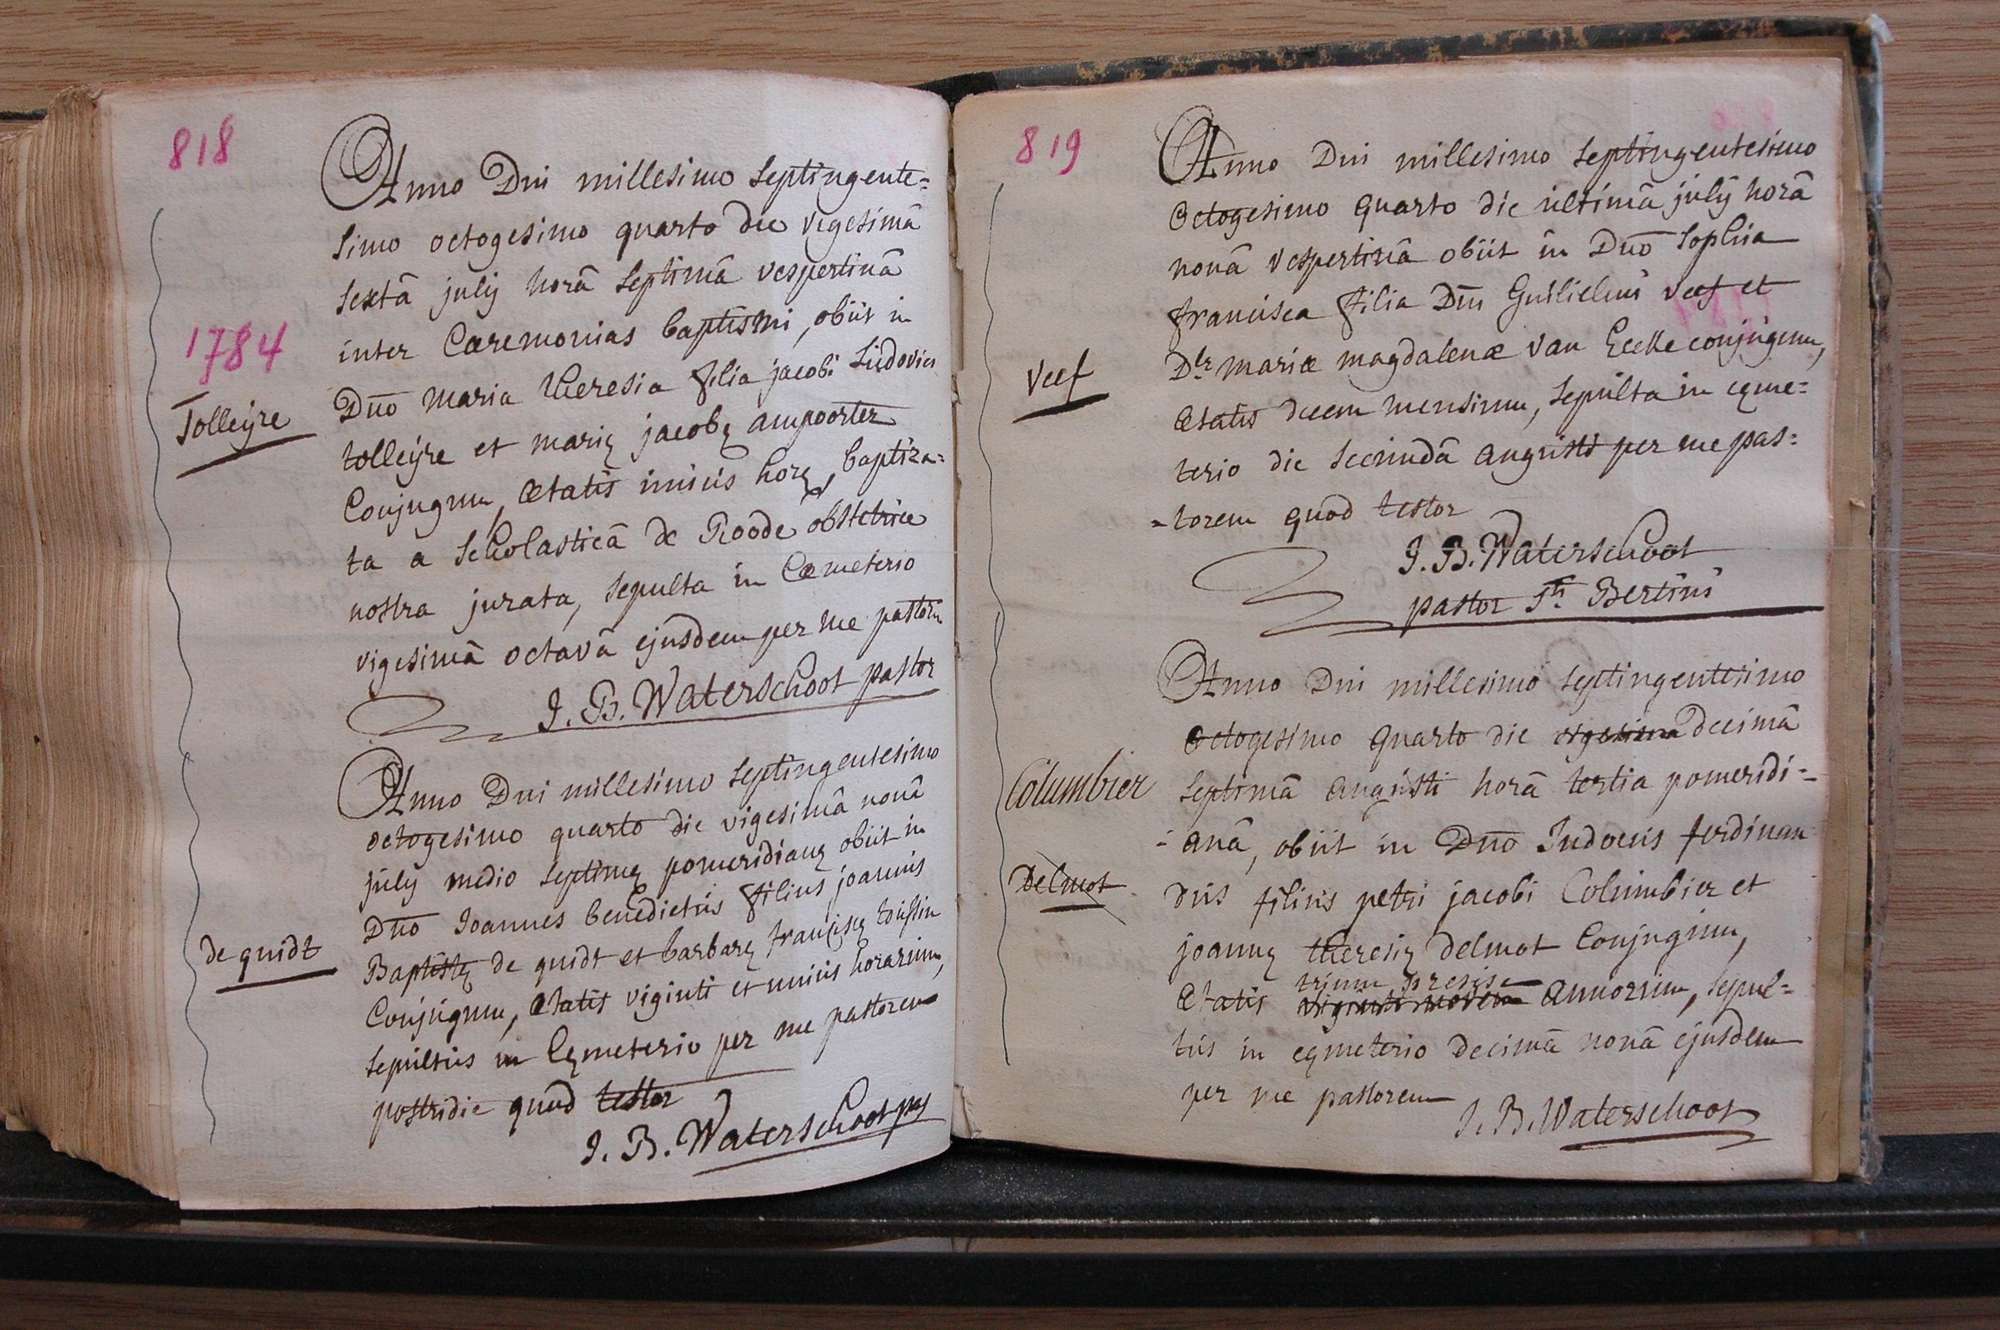 818
Anno Dni millesimo septingente=
simo octogesimo quarto die vigesimâ
sextâ julij horâ septimâ vespertinâ
1784
inter Cæremonias baptismi, obiit in
Dno Maria theresia filia jacobi Ludovici
Tolleijre
tolleijre et marię jacobę ampoorter
Conjugum, ætatis unius horę, baptiza=
ta a scholasticâ de Roode obstetrice
nostra jurata, sepulta in Cæmeterio
vigesimâ octavâ ejusdem per me pastorem
J. B. Waterschoot pastor
Anno Dni millesimo septingentesimo
octogesimo quarto die vigesimâ nonâ
julij medio septimę pomeridianę obiit in
Dno Joannes benedictus filius joannis
de quidt
Baptistę de quidt et barbarę franciscę
Conjugum, ætatis viginti et unius horarum,
sepultus in Cęmeterio per me pastorem
postridie quod testor
J. B. Waterschoot
819
Anno Dni millesimo septingentesimo
octogesimo quarto die ultimâ julij horâ
nonâ vespertinâ obiit in Dno Sophia
francisca filia Dni Guilielmi Veef et
Veef
Dlæ mariæ magdalenæ van Eecke conjugum,
ætatis decem mensium, sepulta in cęme=
terio die secundâ augusti per me pas=
=torem quod testor
J. B. Waterschoot
pastor Sti Bertini
Anno Dni millesimo septingentesimo
octogesimo quarto die vigesima decimâ
Columbier
septimâ augusti horâ tertia pomeridi=
=anâ, obiit in Dno Judocus ferdinan
Delmot
dus filius petri jacobi Columbier et
joannę theresię delmot Conjugum,
trium
ætatis annorum, sepul=
tus in cęmeterio decimâ nonâ ejusdem
per me pastorem
J. B. Waterschoot